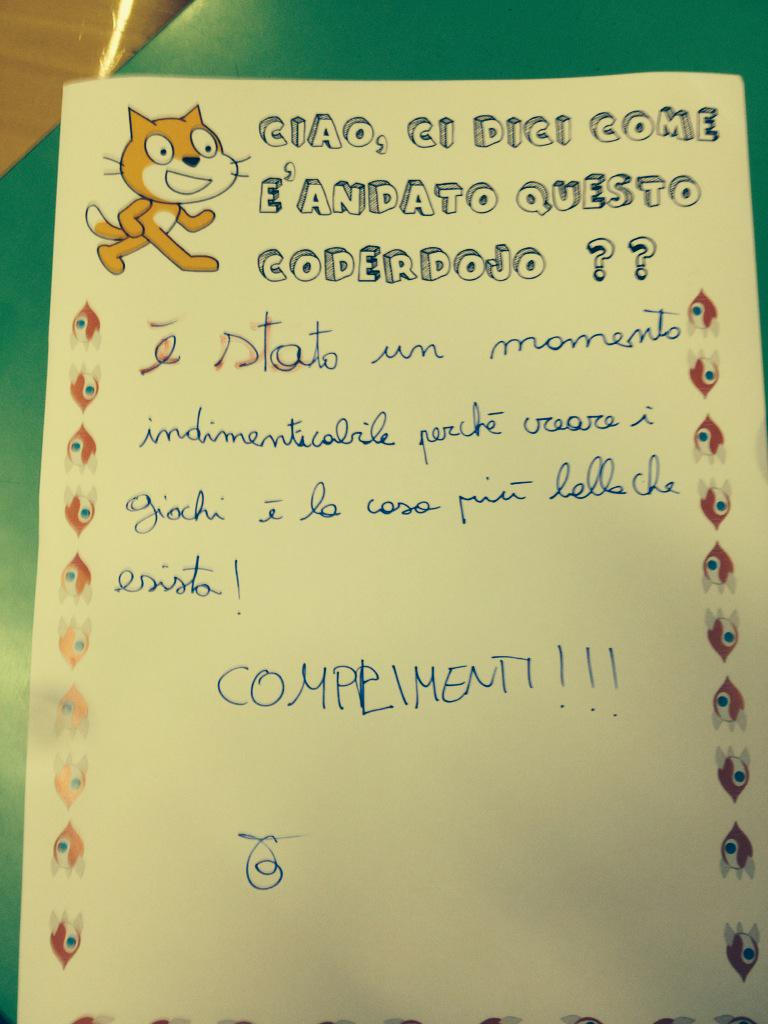 CIAO, CI DICI COME
E'ANDATO QUESTO
CODERDOJO ??
è stato un momento
indimenticabile perché creare i
giochi è la cosa più bella che
esista!
COMPLIMENTI!!!